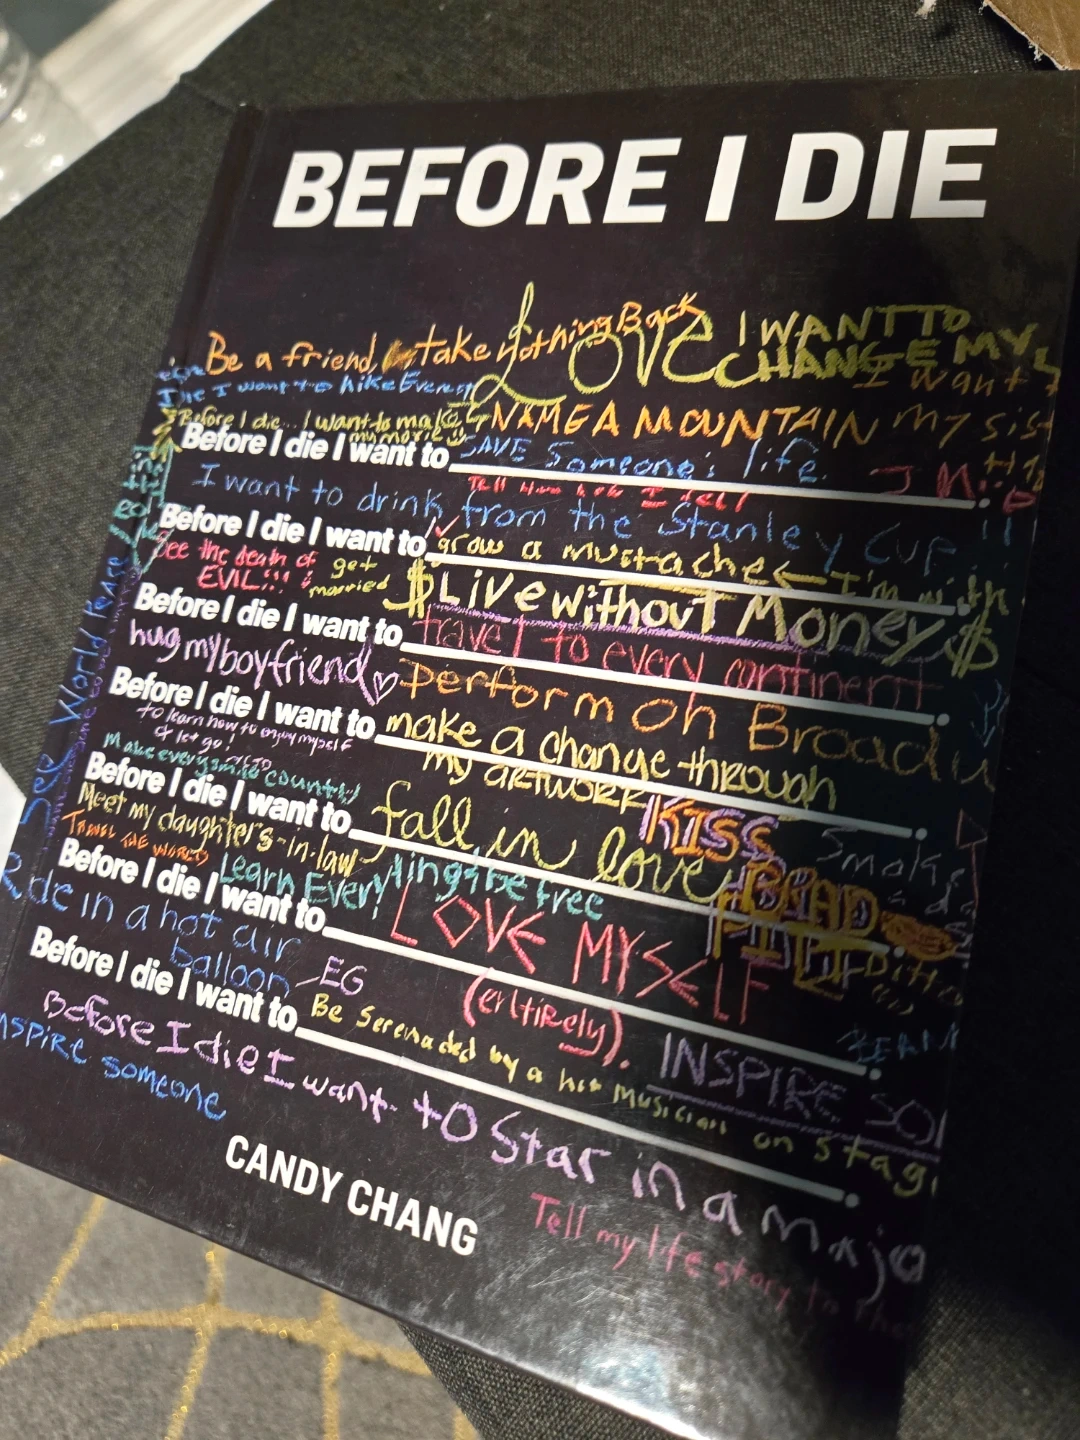 BEFORE I DIE
Be a friend, take nothing Back
LOVE
I WANT TO
CHANGE MY
I want
I want to hike Everest
NAME A MOUNTAIN
my sis
Before I die... I want to make
my movie
Before I die I want to SAVE Someone's life.
Tell I feel
I want to drink from the Stanley Cup !!
Before I die I want to grow a mustache ← I'm with
See the death of
EVIL!!!
get
married
$ Live without Money $
Before I die I want to travel to every continent
hug my boyfriend
Perform on Broadw
Before I die I want to make a change through
my artwork
to learn how to enjoy myself
& let go!
Make every country
Before I die I want to fall in love
KISS
Meet my daughter's-in-law
TRAVEL THE WORLD
Learn Everything + be free
BRAD
PITT
Ditto
Before I die I want to LOVE MYSELF
(entirely).
Ride in a hot air
balloon -EG
INSPIRE SO
Before I die I want to Be Serenaded by a hot musician on stag
Before I die I want to Star in a majo
Inspire someone
See World Peace
CANDY CHANG
Tell my life story to the